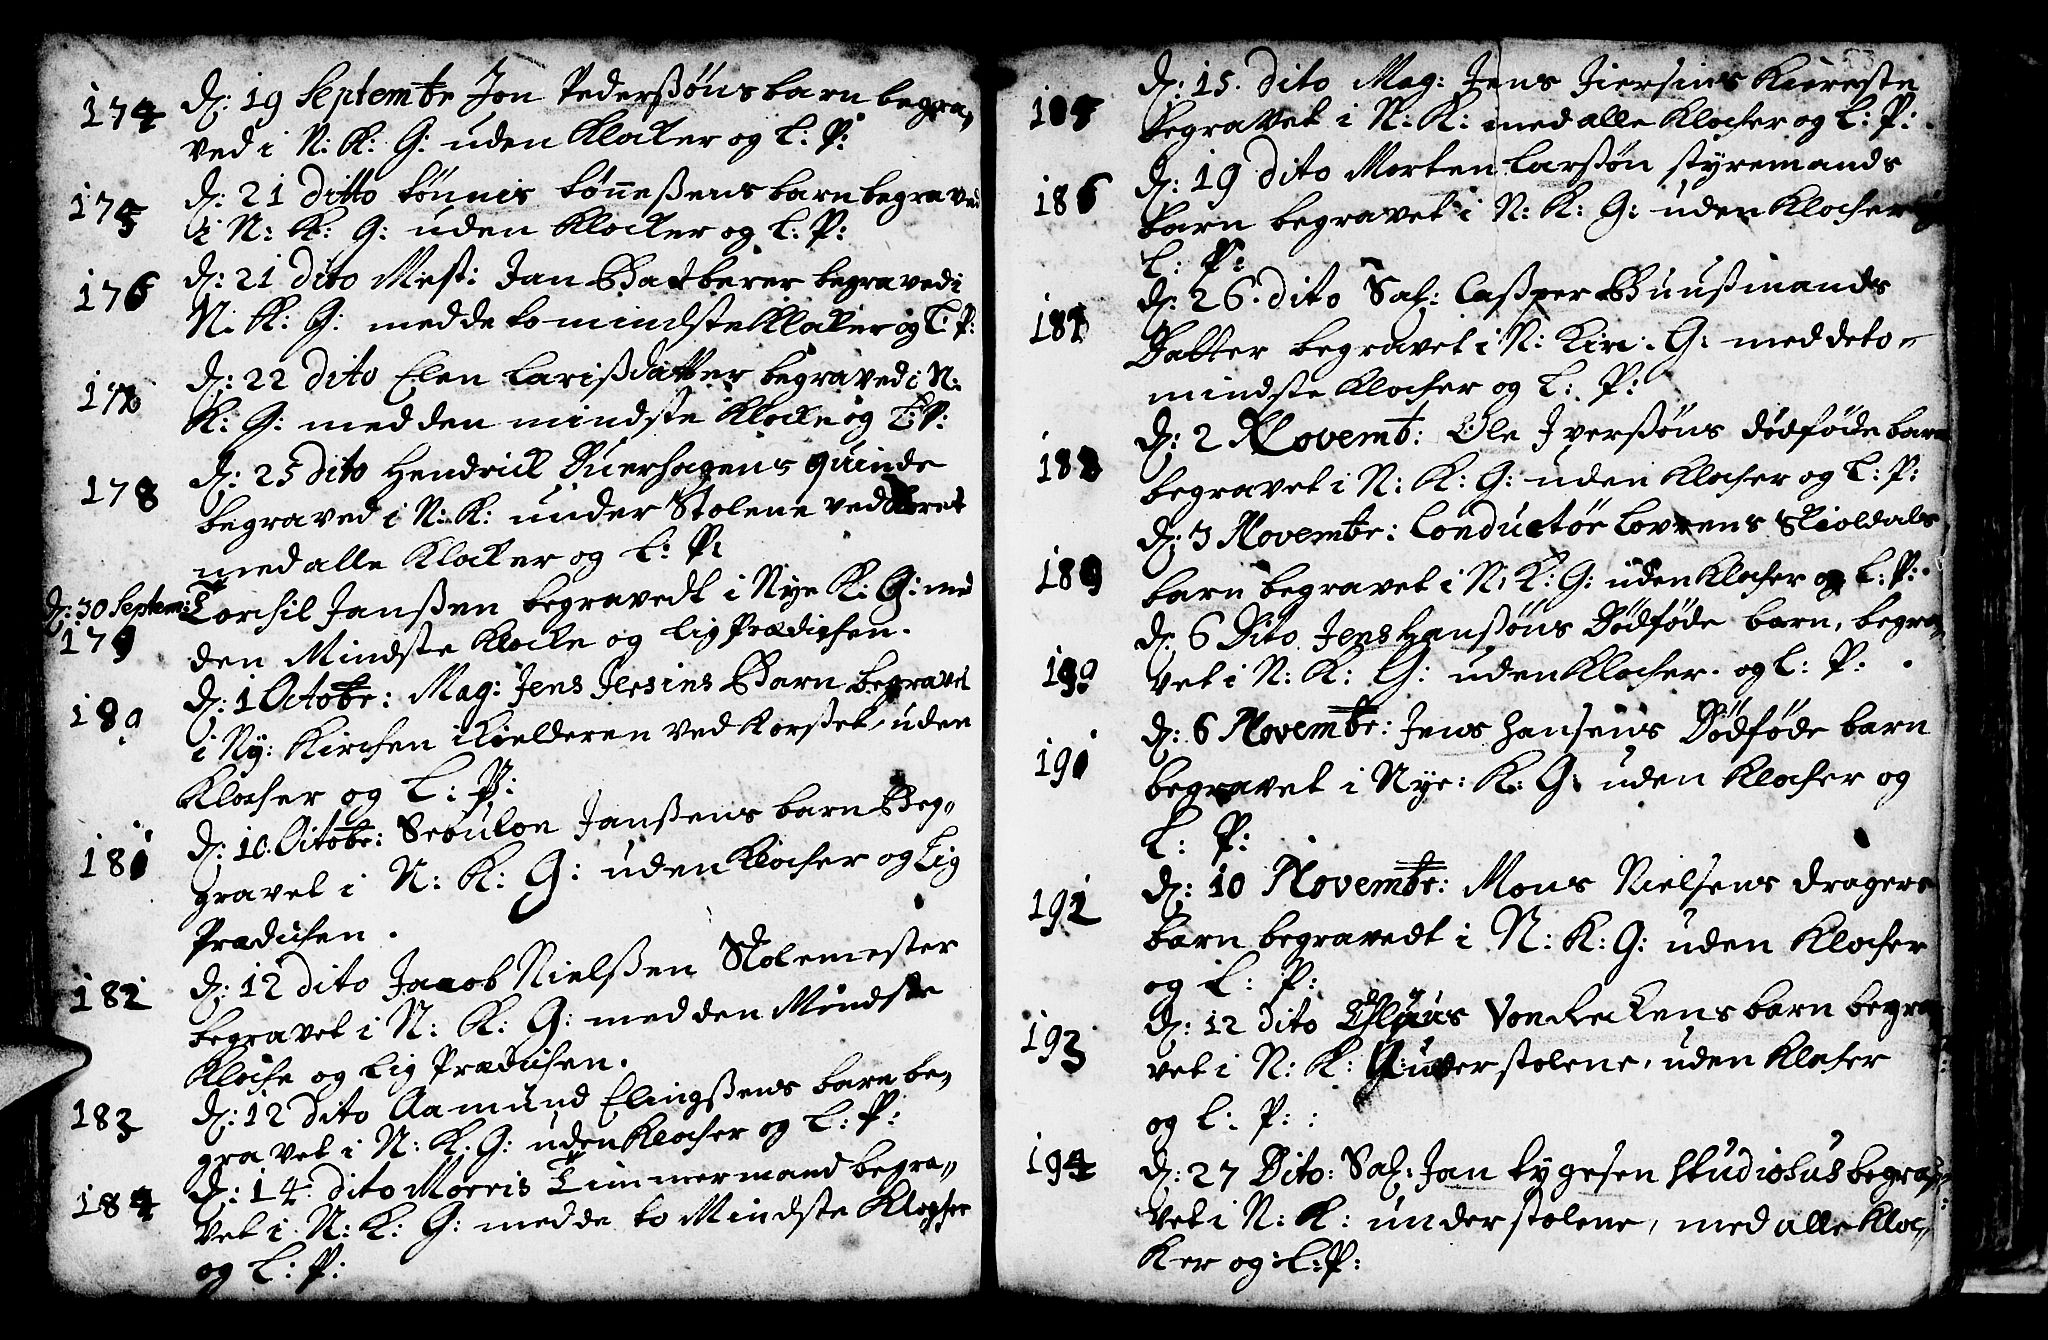 174 d: 19 Septembr Jon Pederßøns barn begra„
ved i N: K: G: uden Klocker og L: P:
175 d: 21 ditto tönnis tönneßens barn begraved
i N: K: G: uden Klocker og L: P:
176 d: 21 dito Mest: Jan Badtberer begraved i
N: K: G: med de to mindste Klocker og L: P:
177 d: 22 dito Elen Larißdatter begraved i N:
K: G: med den mindste Klocke og L: P:
178 d: 25 dito Hendrick Duerhagens quinde
begraved i N: K: under Stolene ved Koret
med alle Klocker og L: P:
d: 30 Septem: Torchil Janßen begravedt i Nye K: G: med
179 den Mindste Klocke og Lig Prædichen.
180 d: 1 Octobr: Mag: Jens Jersins Barn begravet
i Ny: Kirchen i Kielderen ved Korßet, uden
Klocher og L: P:
181 d: 10. Octobr: Sebulon Janßens barn Beg„
gravet i N: K: G: uden Klocher og Lig
Prædichen.
182 d: 12 dito Jacob Nielßen Stolemester
begravet i N: K: G: med den Mindste
Kloche og Lig Prædichen.
183 d: 12 dito Aamund Elingßens barn be„
gravet i N: K: G: uden Klocher og L: P:
184 d: 14. dito Morris Timmermand begra„
vet i N: K: G: med de to Mindste Klocher
og L: P:
185 d: 15. dito Mag: Jens Jiersins Kiereste
begravet i N: K: med alle Klocher og L: P:
186 d: 19 dito Morten Larßøn styremands
barn begravet i N: K: G: uden Klocher og
L: P:
187 d: 26. dito Sal: Caßper Buußmands
Datter begravet i N: Kirc. G: med de to
mindste Klocher og L: P:
188 d: 2 Novemb: Ole Iverßøns dødføde barn
begravet i N: K: G: uden Klocher og L: P:
189 d: 3 Novembr: Conductør Lovrens Skioldals
barn begravet i N: K: G: uden Klocher og L: P:
190 d: 6 Dito Jens Hanßøns Dødføde barn, begra„
vet i N: K: G: uden Klocher. og L: P:
191 d: 6 Novembr: Jens Hansens Dødføde barn
begravet i Nye: K: G: uden Klocher og
L: P:
192 d: 10 Novembr: Mons Nielsens dragers
barn begravedt i N: K: G: uden Klocher
og L: P:
193 d: 12 dito Von Reckens barn begra
vet i N: K: under stolene, uden Klocher
og L: P:
194 d: 27 Dito: Sal: Jan tygesen Studiosus begra„
vet i N: K: under stolene, med alle Kloc„
Ker og L: P: